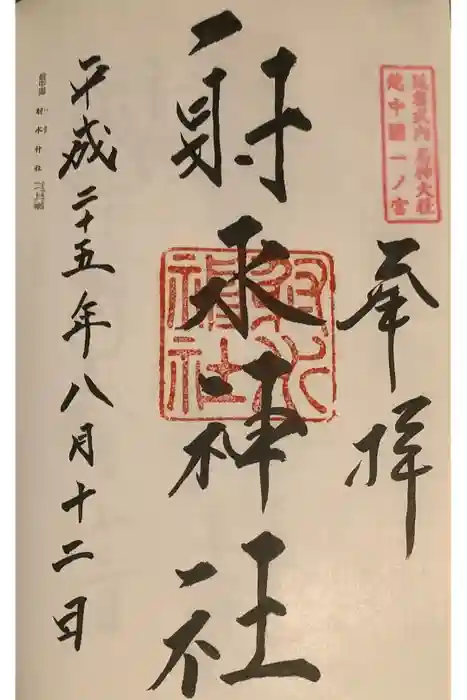 延喜式内 名神大社
越中國一ノ宮
奉拝
射水神社
射水神社
平成二十五年八月十二日
越中国 射水神社